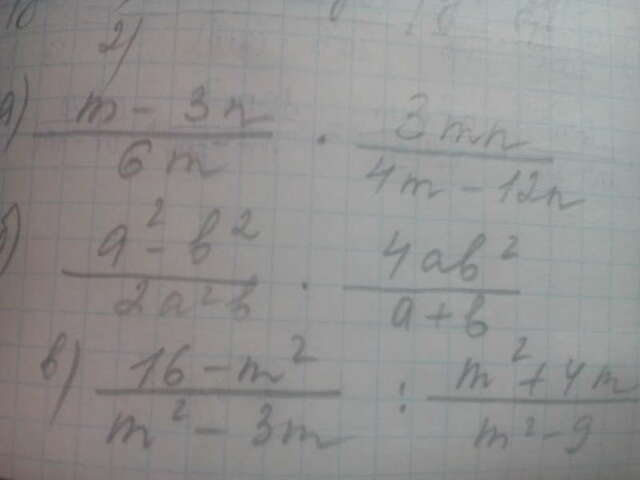 2)
а) m - 3n / 6m · 3mn / 4m - 12n
б) a² - b² / 2a²b · 4ab² / a + b
в) 16 - m² / m² - 3m : m² + 4m / m² - 9